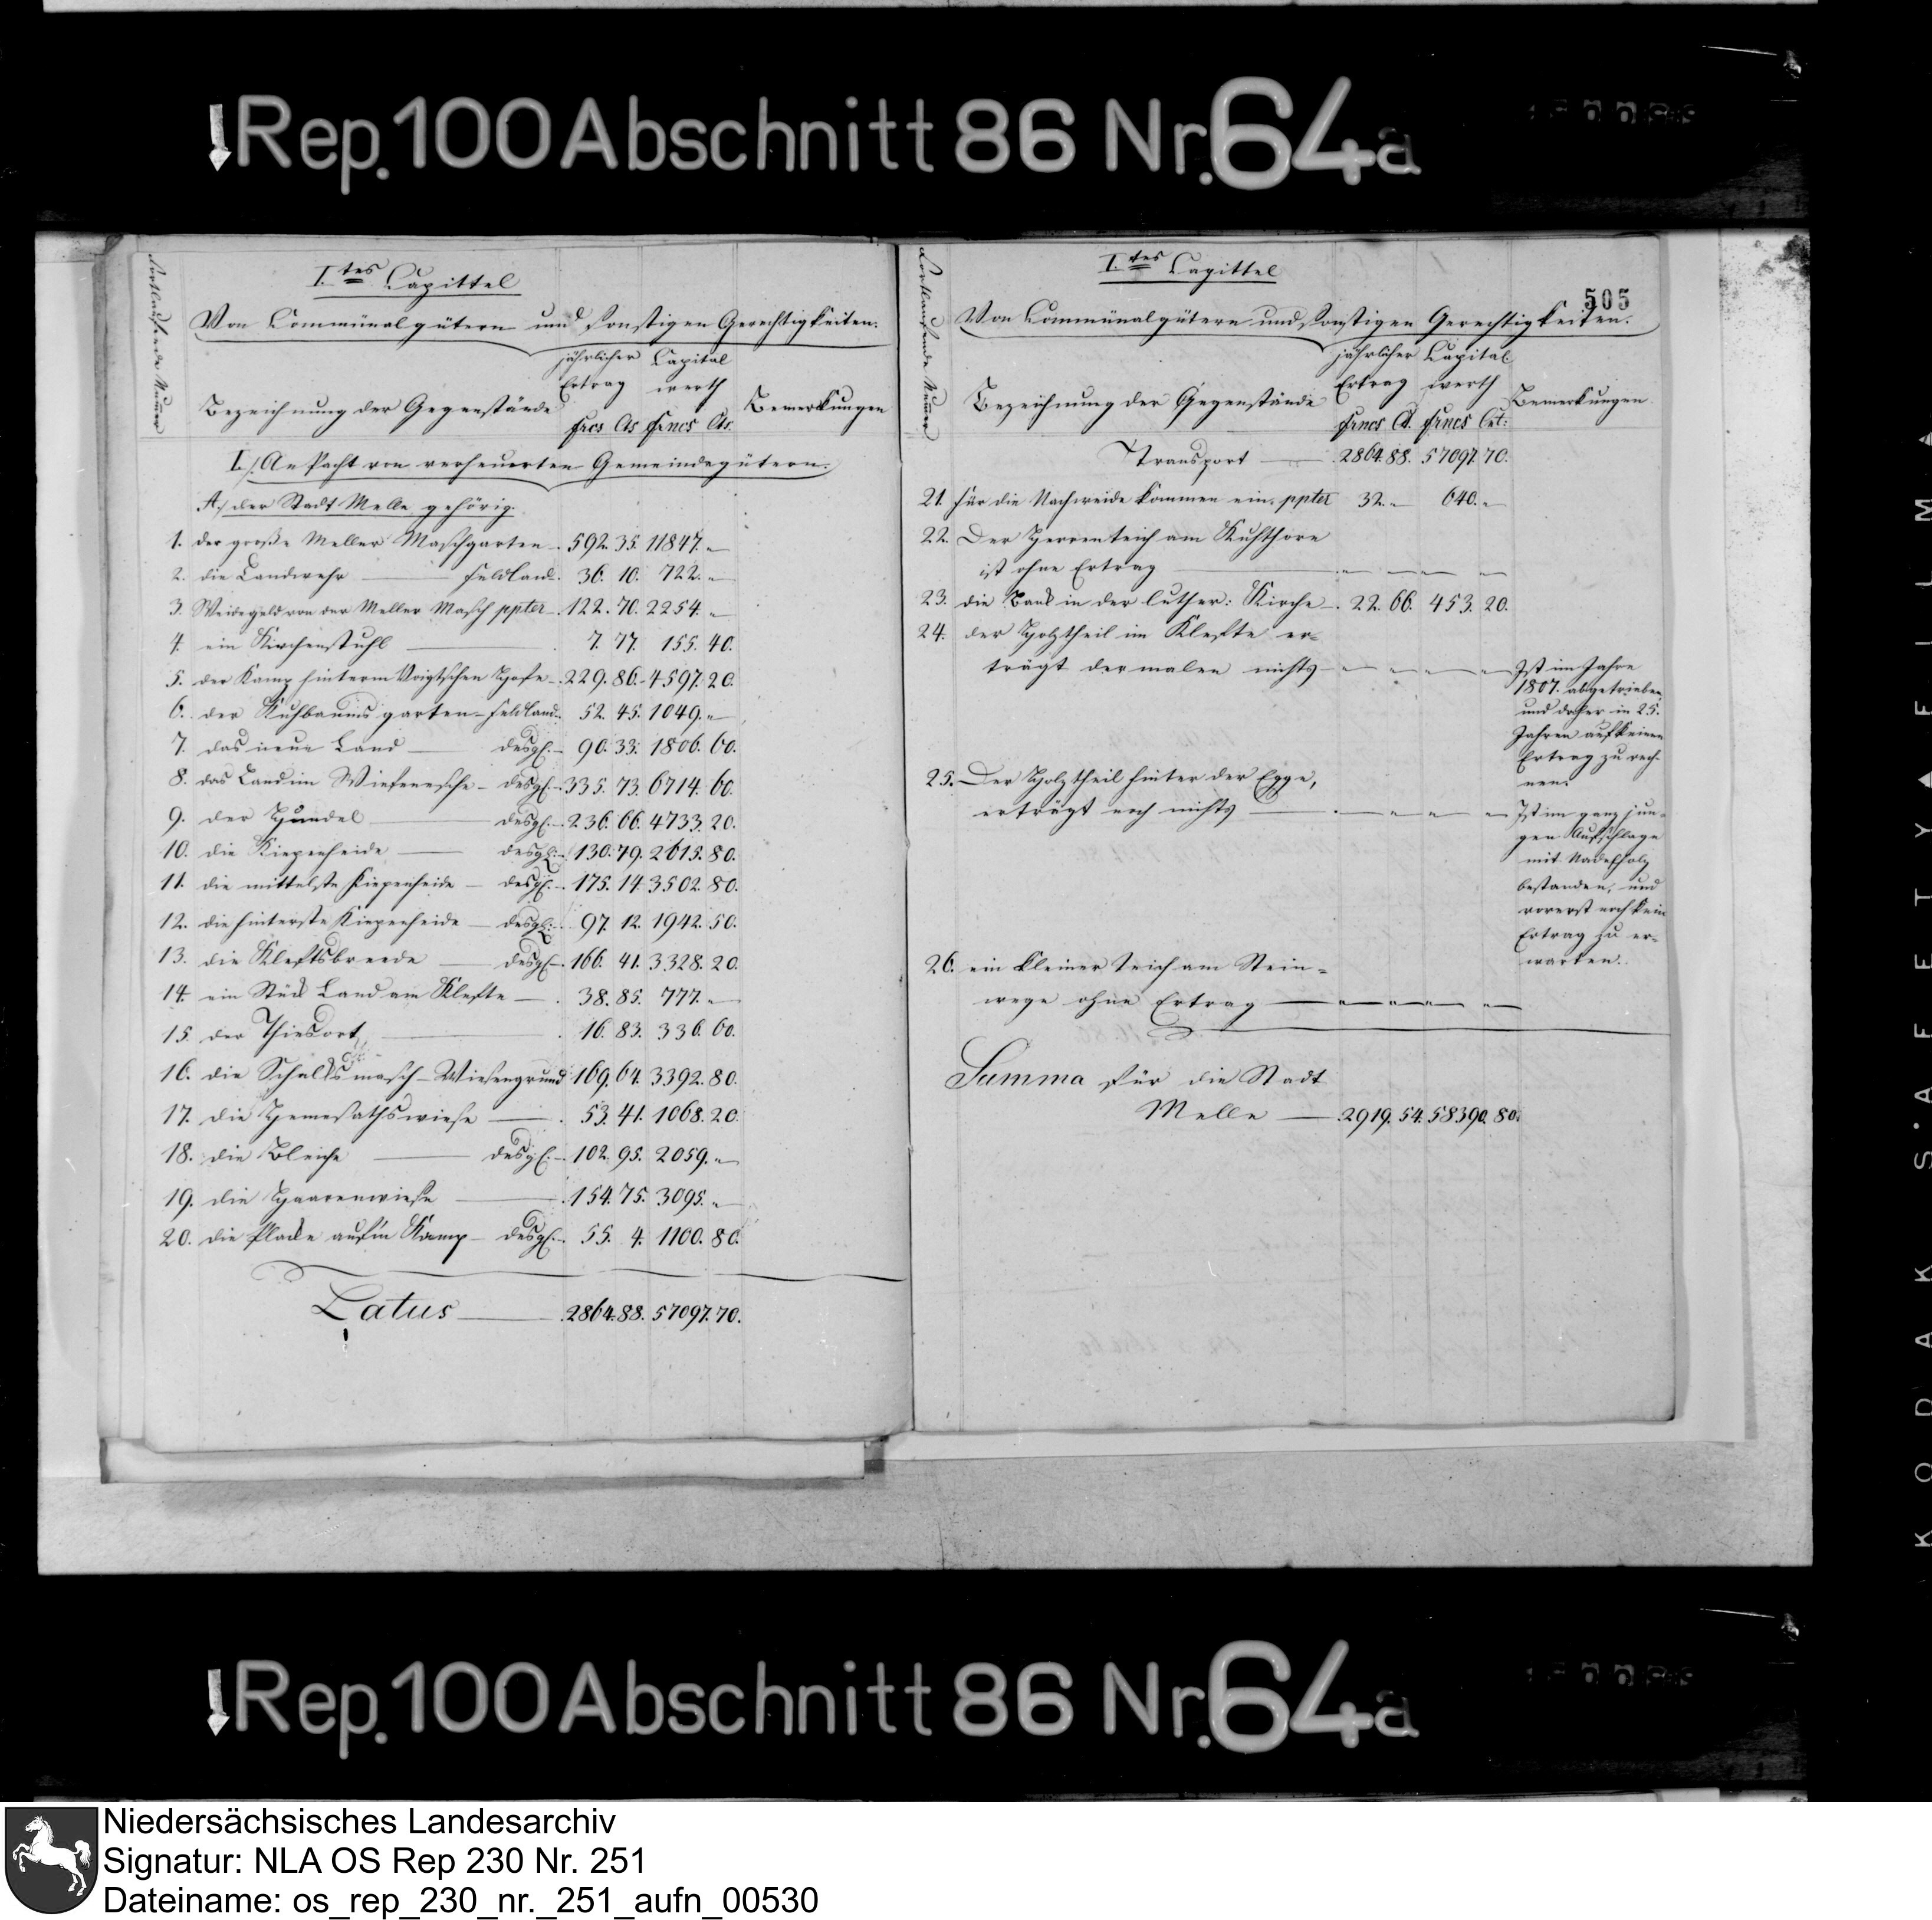 Rep. 100 Abschnitt 86 Nr. 64a
Fortlaufende Numern
I.tes Capittel
Von Communalgütern und sonstigen Gerechtigkeiten.
Bezeichnung der Gegenstände
jährlicher Ertrag
Capital werth
Bemerkungen
frcs Cts frncs Cts.
I./. An Pacht von verheuerten Gemeindegütern.
A./ der Stadt Melle gehörig.
1. der große Meller Maschgarten — 592. 35. 11847. "
2. die Landwehr — Feldland. 36. 10. 722. "
3. Weidegeld von der Meller Masch ppter — 122. 70. 2254. "
4. ein Kirchenstuhl — 7. 77. 155. 40.
5. der Kamp hinterm Voigtschen Hofe — 229. 86. 4597. 20.
6. der Kuhbaums garten — Feldland. 52. 45. 1049. "
7. das neue Land — desgl. — 90. 33. 1806. 60.
8. das Land im Wiesenesche — desgl. — 335. 73. 6714. 60.
9. der Hundel — desgl. — 236. 66. 4733. 20.
10. die Kiepenheide — desgl. — 130. 79. 2615. 80.
11. die mittelste Kiepenheide — desgl. — 175. 14. 3502. 80.
12. die hinterste Kiepenheide — desgl. 97. 12. 1942. 50.
13. die Kleftsbreede — desgl. — 166. 41. 3328. 20.
14. ein Stück Land am Klefte — 38. 85. 777. "
15. der Thiesort — 16. 83. 336. 60.
16. die Schalksmasch — Wiesengrund 169. 64. 3392. 80.
17. die — 53. 41. 1068. 20.
18. die Bleiche — desgl. — 102. 95. 2059. "
19. die Haarenwiese — 154. 75. 3095. "
20. die Placke aufm Kamp — desgl. — 55. 4. 1100. 80.
Latus — 2864. 88. 57097. 70.
505
Fortlaufende Numern
I.tes Capittel
Von Communalgütern und sonstigen Gerechtigkeiten.
Bezeichnung der Gegenstände
jährlicher Ertrag
Capital werth
Bemerkungen
frncs Ct. frncs Cet:
Transport — 2864. 88. 57097. 70.
21. für die Nachweide kommen ein. ppter 32. " 640. "
22. Der Herrenteich am Kuhthore
ist ohne Ertrag — " — " — "
23. die Bank in der luther: Kirche — 22. 66. 453. 20.
24. der Holztheil im Klefte er=
trägt dermalen nichts — " " " "
Ist im Jahre
1807. abgetrieben
und daher in 25.
Jahren auf keinen
Ertrag zu rech=
nen.
25. Der Holztheil hinter der Egge,
erträgt noch nichts — " " "
Ist im ganz jun=
gen Aufschlage
mit Nadelholz
bestanden, und
vorerst noch kein
Ertrag zu er=
warten.
26. ein kleiner Teich am Stein=
wege ohne Ertrag — " " " "
Summa für die Stadt
Melle — 2919. 54. 58390. 80.
Rep. 100 Abschnitt 86 Nr. 64a
KODAK S.AFETY▲FILM▲
Niedersächsisches Landesarchiv
Signatur: NLA OS Rep 230 Nr. 251
Dateiname: os_rep_230_nr._251_aufn_00530